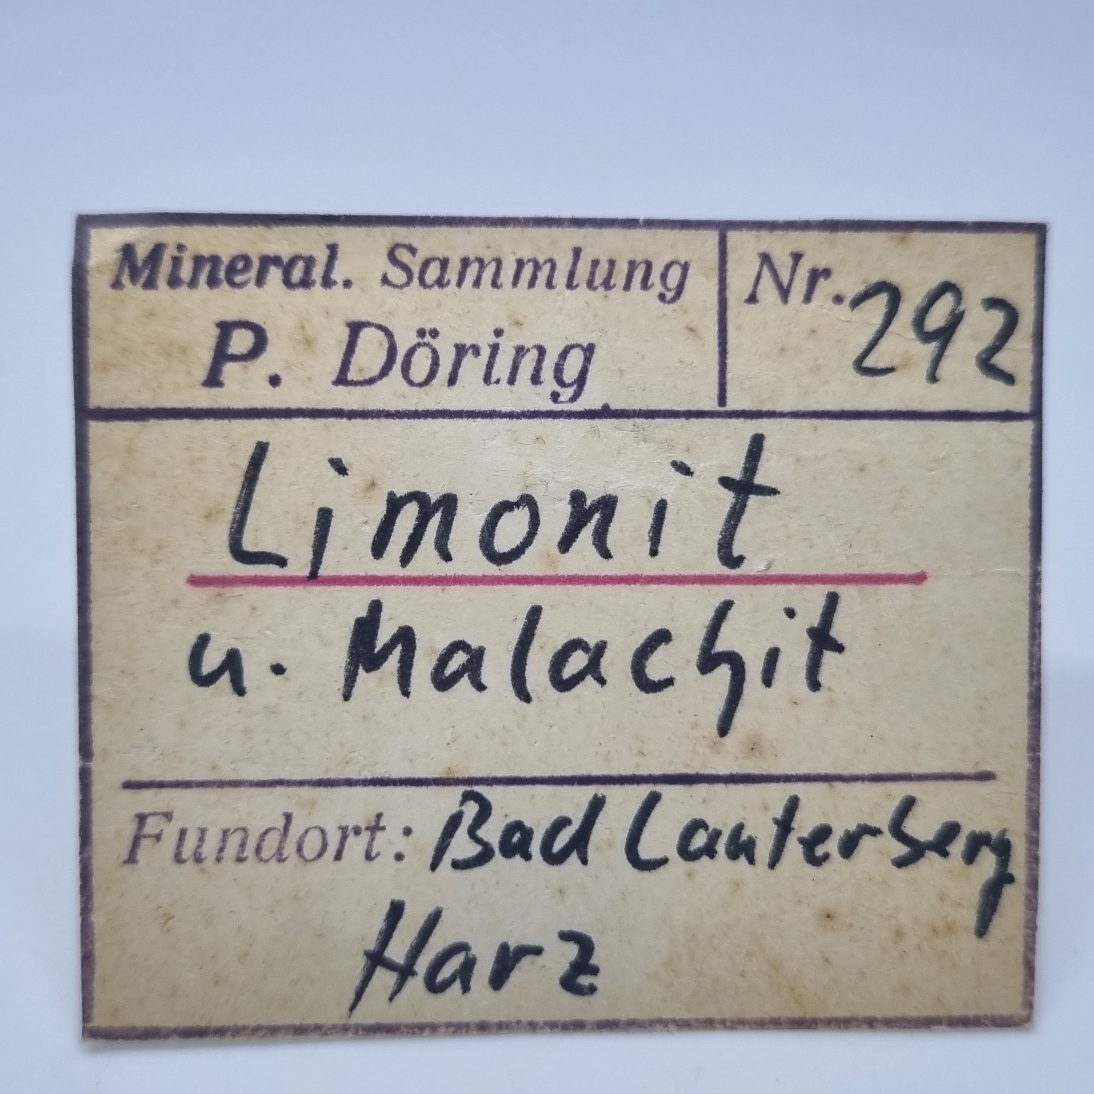 Mineral. Sammlung
P. Döring
Nr. 292
Limonit
u. Malachit
Fundort: Bad Lauterberg
Harz